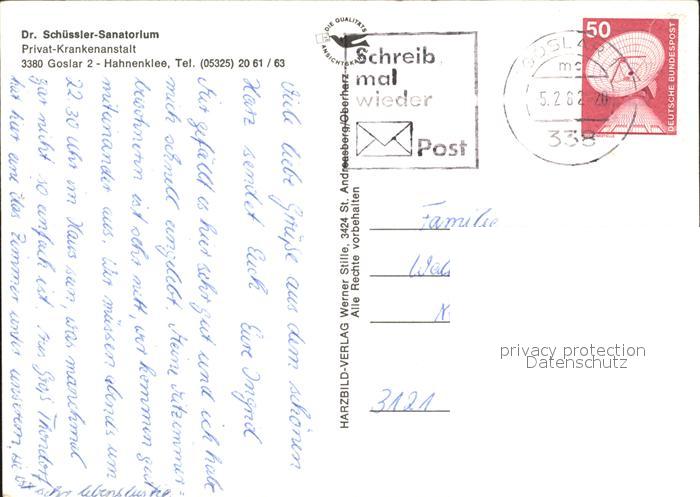 Dr. Schüssler-Sanatorium
Privat-Krankenanstalt
3380 Goslar 2 - Hahnenklee, Tel. (05325) 20 61 / 63
DIE QUALITÄTS
ANSICHTSKARTE
Schreib
mal
wieder
Post
GOSLAR 1
mc
5.2.82-20
338
50
DEUTSCHE BUNDESPOST
Viele liebe Grüße aus dem schönen
Harz sendet Euch Eure Ingrid
Mir gefällt es hier sehr gut und ich habe
mich schnell eingelebt. Meine
bewohnerin ist sehr nett, wir kommen gut
miteinander aus. Wir müssen abends um
22.30 Uhr im Haus sein, was manchmal
gar nicht so einfach ist. Aus
hat hier eine das Zimmer unter unserem, sie ist
sehr lebenslustig
HARZBILD-VERLAG Werner Stille, 3424 St. Andreasberg/Oberharz
Alle Rechte vorbehalten
Familie
3121
privacy protection
Datenschutz